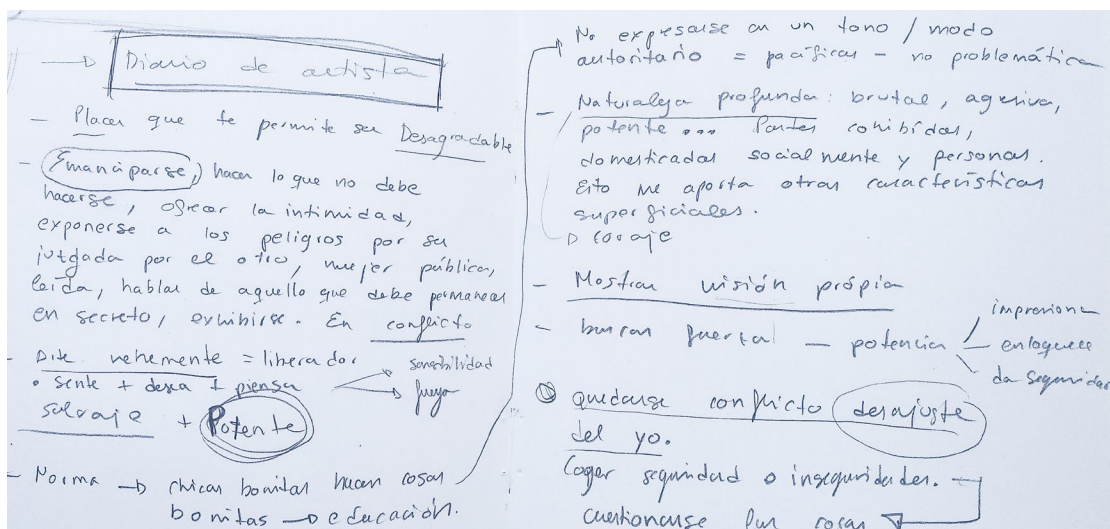 → Diario de artista
- Placer que te permite ser Desagradable
- Emanciparse, hacer lo que no debe
hacerse, ofrecer la intimidad,
exponerse a los peligros por ser
jutgada por el otro, mujer pública,
leída, hablar de aquello que debe permanecer
en secreto, exhibirse. En conflicto
- Dite vehemente = liberador
sensibilidad
• sente + desea + piensa
fuego
salvaje + Potente
- Norma → chicas bonitas hacen cosas
bonitas → educación.
No expresarse en un tono / modo
autoritario = pacíficas - no problemática
- Naturaleza profunda: brutal, agresiva,
potente... Partes cohibidas,
domesticadas socialmente y personas.
Esto me aporta otras características
superficiales.
→ coraje
- Mostrar visión própia
- buscar fuerza — potencia
impresiona
enloquece
da seguridad
quedarse conflicto desajuste
del yo.
Coger seguridad o inseguridades.
cuestionarse las cosas